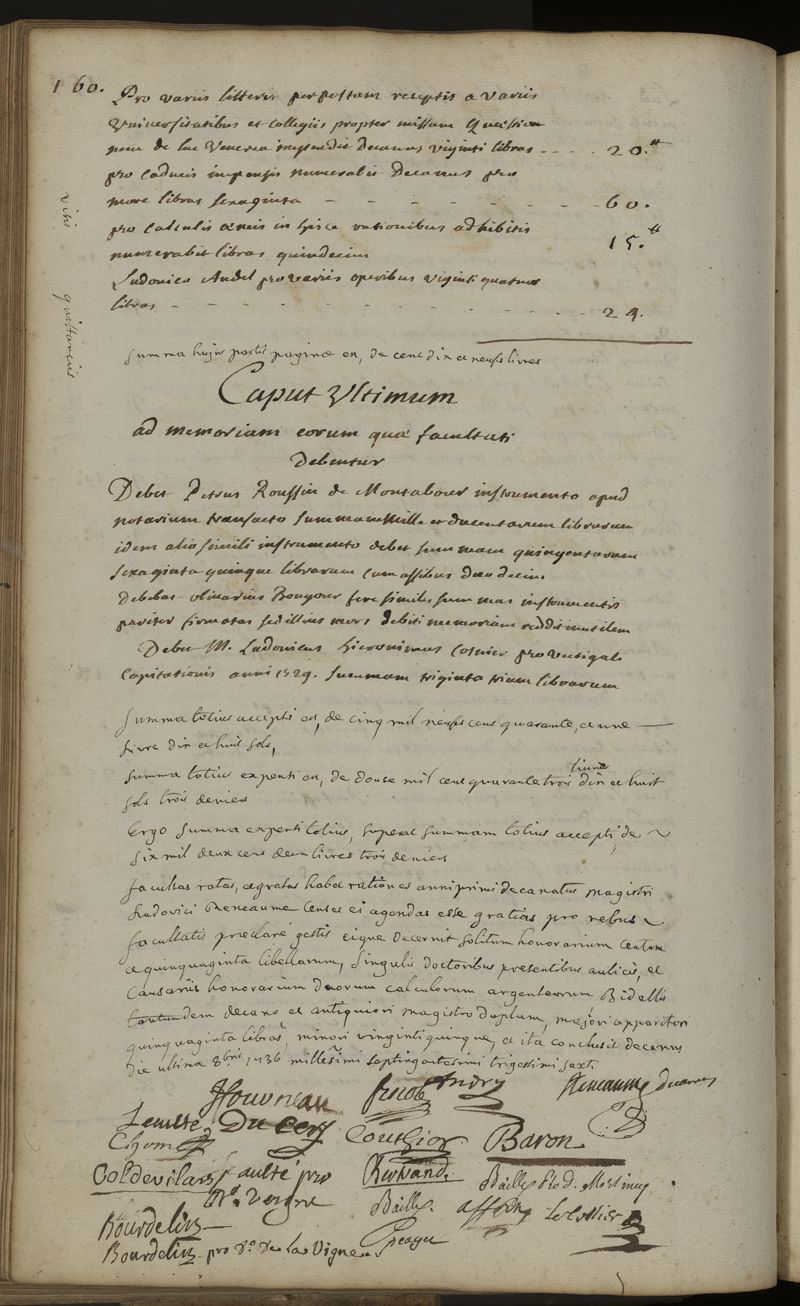 160.
Pro variis litteris per postam receptis a variis
Universitatibus et collegiis propter missam Quæstion
nem de lue Venerea impendit Decanus viginti libras - - - - 20.tt
pro caducis impensis numeralis Decanus pro
more libras sexaginta - - - - - - - - - 60.
pro calculis æneis in hisce rationibus adhibitis
numerabit libras quindecim 15.tt
Ludovico Audel pro variis operibus viginti quatuor
libras - - - - - - - - - - - - - - 24.
visis quittanciis
Summa hujus postis paginæ est, de cent dix et neufs livres
Caput Ultimum
ad memoriam eorum quæ facultati
Debentur
Debet Petrus Roussin de Montabour instrumento apud
notarium transacto summam mille et ducentarum librarum
idem alio simili instrumento debet summam quingentarum
sexaginta quinque librarum cum assibus duodecim
Debebat olivarius Bougour fere similes summas instrumentis
pariter firmatas sed illius mors debiti memoriam reddit inutilem
Debet M. Ludovicus hieronimus Cosnier pro vectigali
Capitationis anni 1729. summam triginta trium librarum
Summa totius accepti est, de cinq mil neufs cens quarante, et une
livre dix et huit sols,
Summa totius expensi est, de douse mil cent quarante trois livres dix et huit
sols trois deniers
Ergo Summa expensi totius, superat summam totius accepti, de
six mil deux cens deux livres trois deniers
facultas ratas, et gratas habet rationes anni primi decanatus magistri
Ludovici Reneaume Censet ei agendas esse gratias pro rebus
facultatis præclaré gestis eique decernit solitum honorarium Centum
et quinquaginta libellarum, singulis doctoribus presentibus aulicis, et
Causariis honorarium duorum calculorum argenteorum Bidellis
tantumdem decano et antiquiori magistro duplum, majori apparitori
quinquaginta libras, minori vinginti quinque, et ita conclusit decanus
die ultima 8bris 1736 millesimi septingentesimi trigesimi sexti
Afforty
Andry
Reneaume decanus
Du Cerf
Baron
Col de vilars
faulté pro
Do. Vergne
Bertrand
Bailly
Bourdelin
Bourdelin pro do. de la Vigne